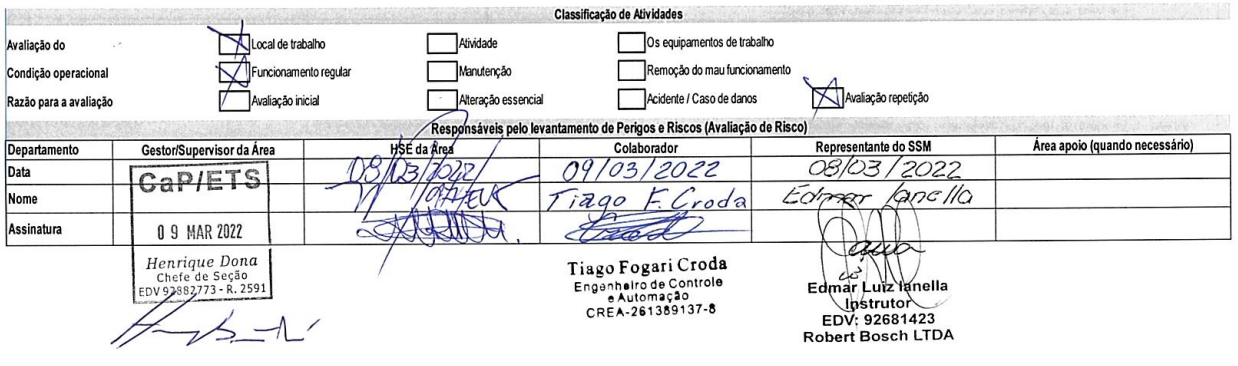 Classificação de Atividades
Avaliação do Local de trabalho Atividade Os equipamentos de trabalho
Condição operacional Funcionamento regular Manutenção Remoção do mau funcionamento
Razão para a avaliação Avaliação inicial Alteração essencial Acidente / Caso de danos Avaliação repetição
Responsáveis pelo levantamento de Perigos e Riscos (Avaliação de Risco)
Departamento Gestor/Supervisor da Área HSE da Área Colaborador Representante do SSM Área apoio (quando necessário)
Data 09/03/2022 08/03/2022
Nome Tiago F. Croda Edmar Ianella
Assinatura
CaP/ETS
09 MAR 2022
Henrique Dona
Chefe de Seção
EDV 92882773 - R. 2591
Tiago Fogari Croda
Engenheiro de Controle
e Automação
CREA-261389137-8
Edmar Luiz Ianella
Instrutor
EDV: 92681423
Robert Bosch LTDA